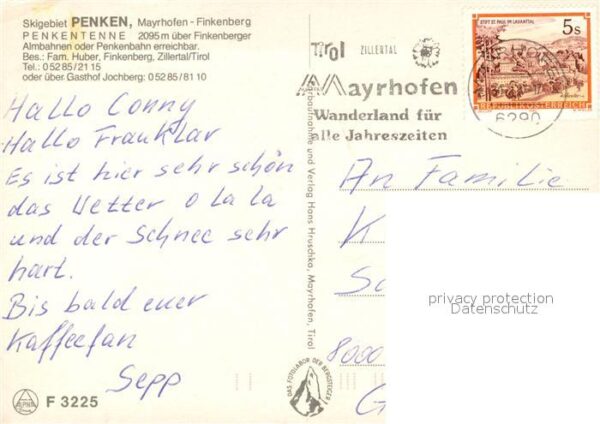 Skigebiet PENKEN, Mayrhofen - Finkenberg
PENKENTENNE 2095 m über Finkenberger
Almbahnen oder Penkenbahn erreichbar.
Bes.: Fam. Huber, Finkenberg, Zillertal/Tirol
Tel.: 0 52 85 / 21 15
oder über Gasthof Jochberg: 0 52 85 / 81 10
Hallo Conny
Hallo Frau Klar
Es ist hier sehr schön
das Wetter o la la
und der Schnee sehr
hart.
Bis bald euer
Kaffeefan
Sepp
F 3225
Farbaufnahme und Verlag Hans Hruschka, Mayrhofen, Tirol
DAS FOTOLABOR DER BERGSTEIGER
Tirol ZILLERTAL
Mayrhofen
Wanderland für
alle Jahreszeiten
6290
STIFT ST. PAUL IM LAVANTTAL
5 S
REPUBLIK ÖSTERREICH
An Familie
K
Sc
8000
G
privacy protection
Datenschutz